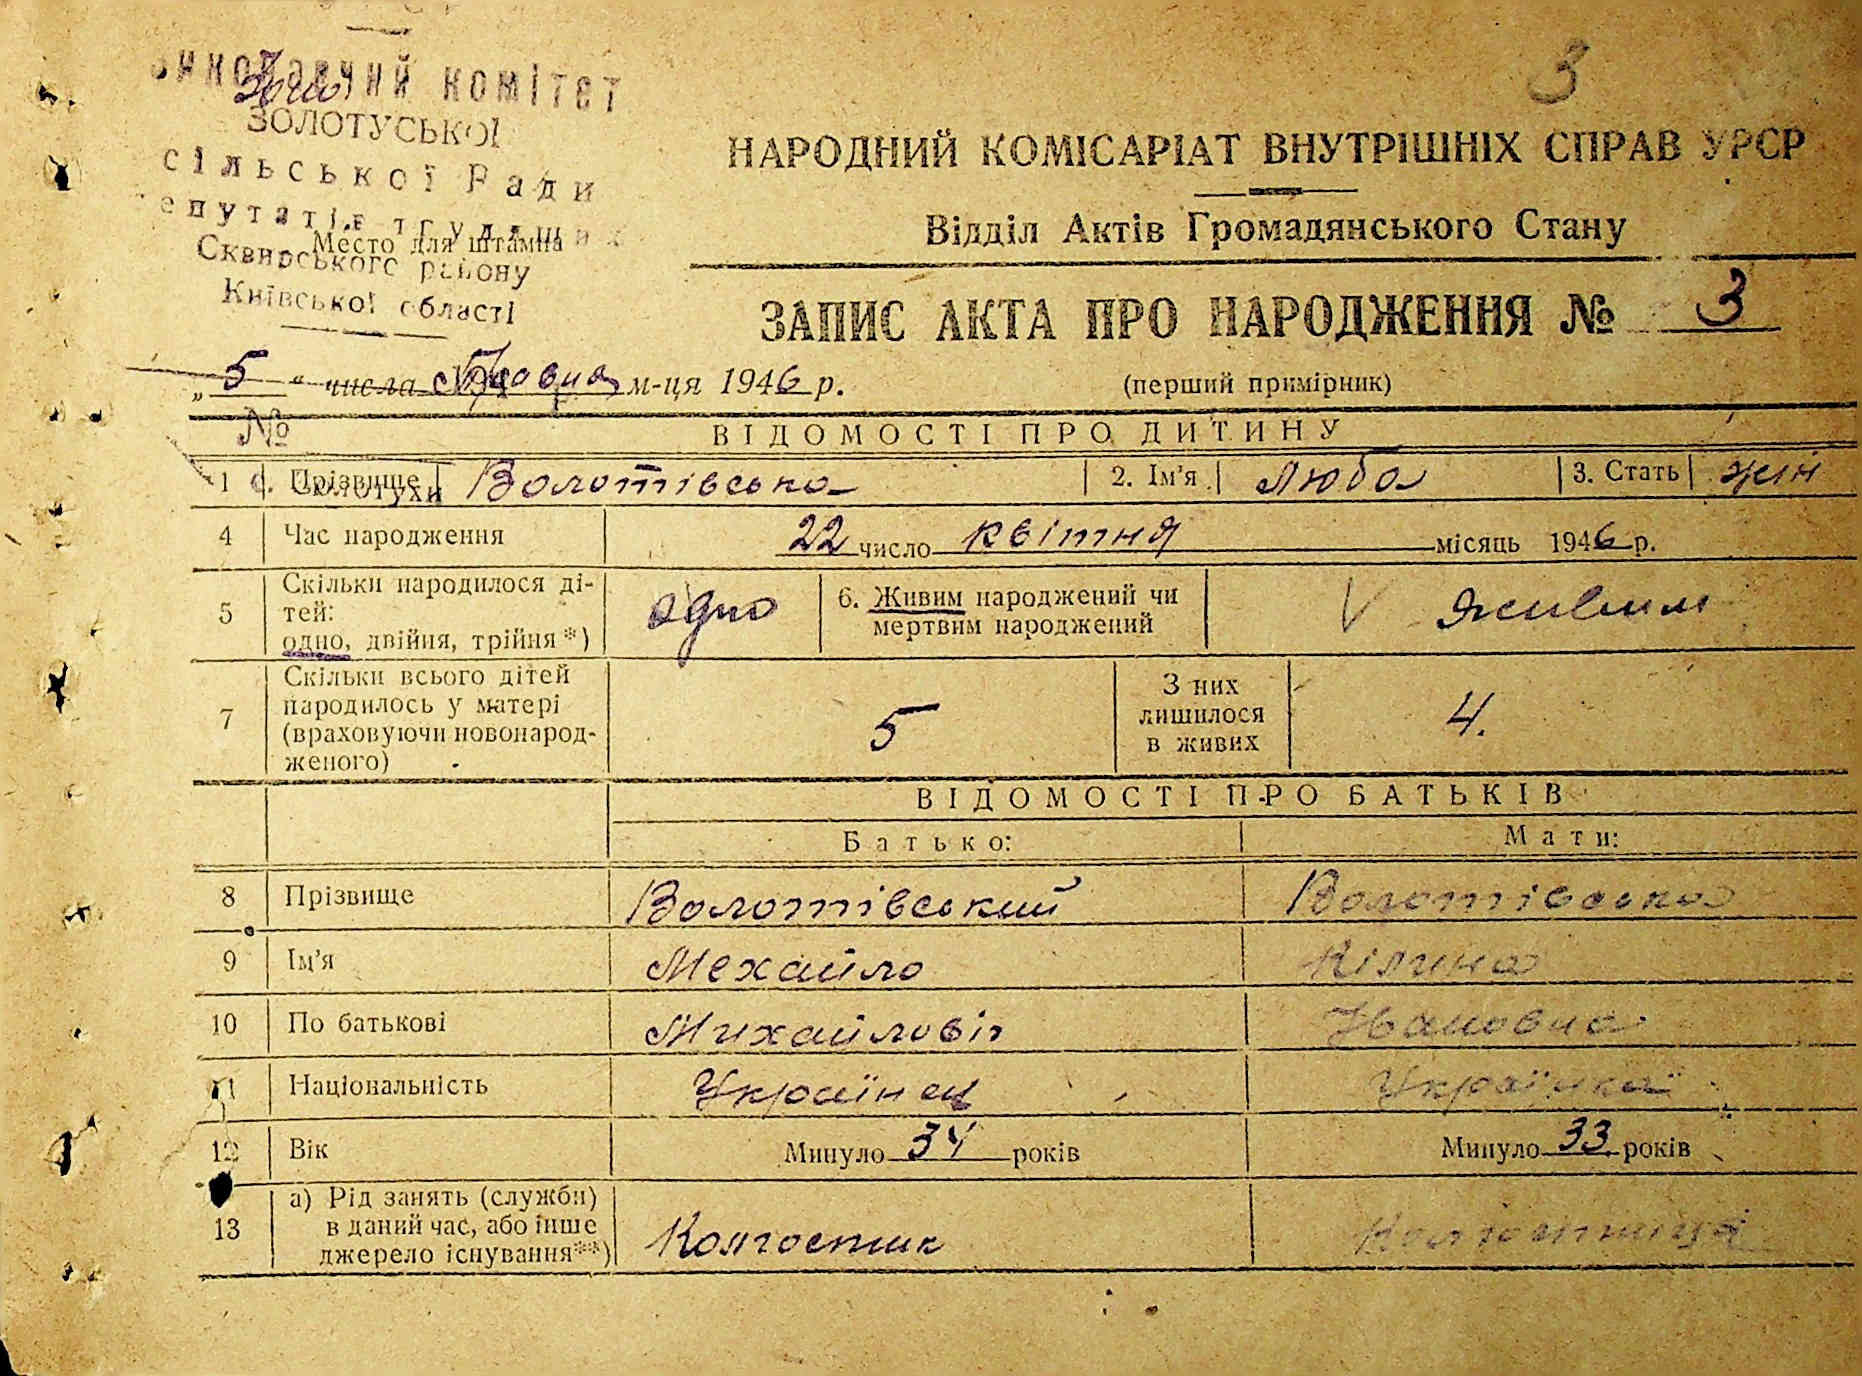 3
Виконавчий комітет
ЗОЛОТУСЬКОЇ
сільської Ради
депутатів трудящих
Место для штампа
Сквирського району
Київської області
НАРОДНИЙ КОМІСАРІАТ ВНУТРІШНІХ СПРАВ УРСР
Відділ Актів Громадянського Стану
ЗАПИС АКТА ПРО НАРОДЖЕННЯ № 3
„5“ числа м-ця 1946 р.
(перший примірник)
№
ВІДОМОСТІ ПРО ДИТИНУ
1 Прізвище Волотівська 2. Ім'я Люба 3. Стать жін
4 Час народження 22 число квітня місяць 1946 р.
5 Скільки народилося ді-
тей:
одно, двійня, трійня*) одно 6. Живим народжений чи
мертвим народжений V живим
7 Скільки всього дітей
народилось у матері
(враховуючи новонарод-
женого) 5 З них
лишилося
в живих 4.
ВІДОМОСТІ ПРО БАТЬКІВ
Батько: Мати:
8 Прізвище Волотівський Волотівська
9 Ім'я Мехайло Кілина
10 По батькові Михайлович Івановна
11 Національність Українец Українка
12 Вік Минуло 34 років Минуло 33 років
13 а) Рід занять (служби)
в даний час, або інше
джерело існування**) Колгоспник Колгоспниця